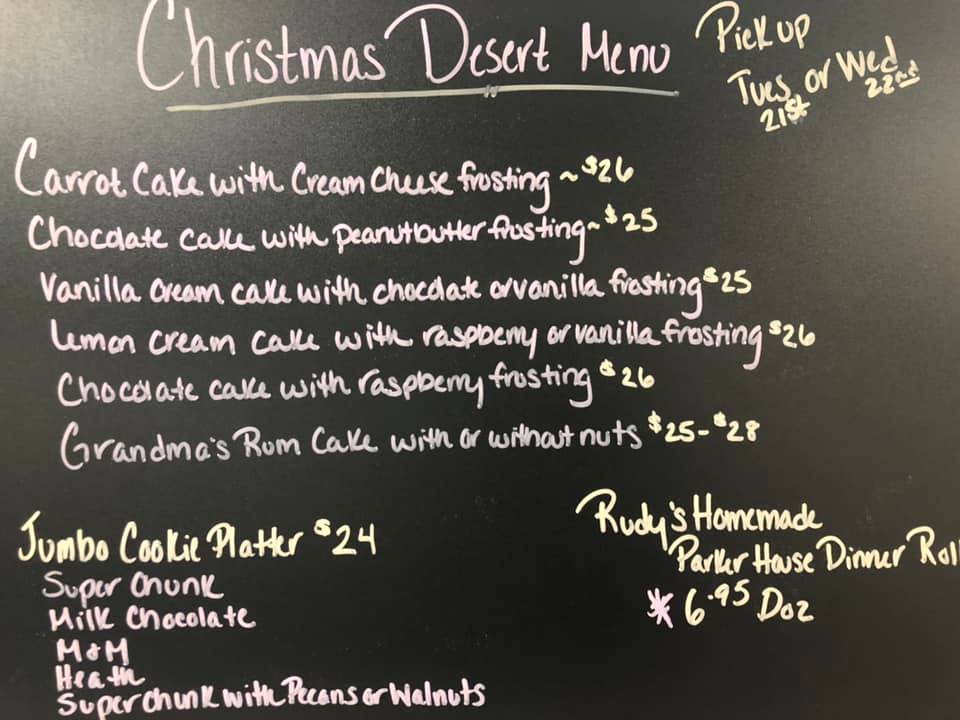 Christmas Desert Menu
Pick up
Tues or Wed
21st 22nd
Carrot Cake with Cream Cheese frosting ~ $26
Chocolate cake with peanutbutter frosting ~ $25
Vanilla Cream cake with chocolate or vanilla frosting $25
Lemon cream cake with raspberry or vanilla frosting $26
Chocolate cake with raspberry frosting $26
Grandma's Rum Cake with or without nuts $25-$28
Jumbo Cookie Platter $24
Super Chunk
Milk Chocolate
M&M
Heath
Super chunk with Pecans or Walnuts
Rudy's Homemade
Parker House Dinner Roll
* 6.95 Doz